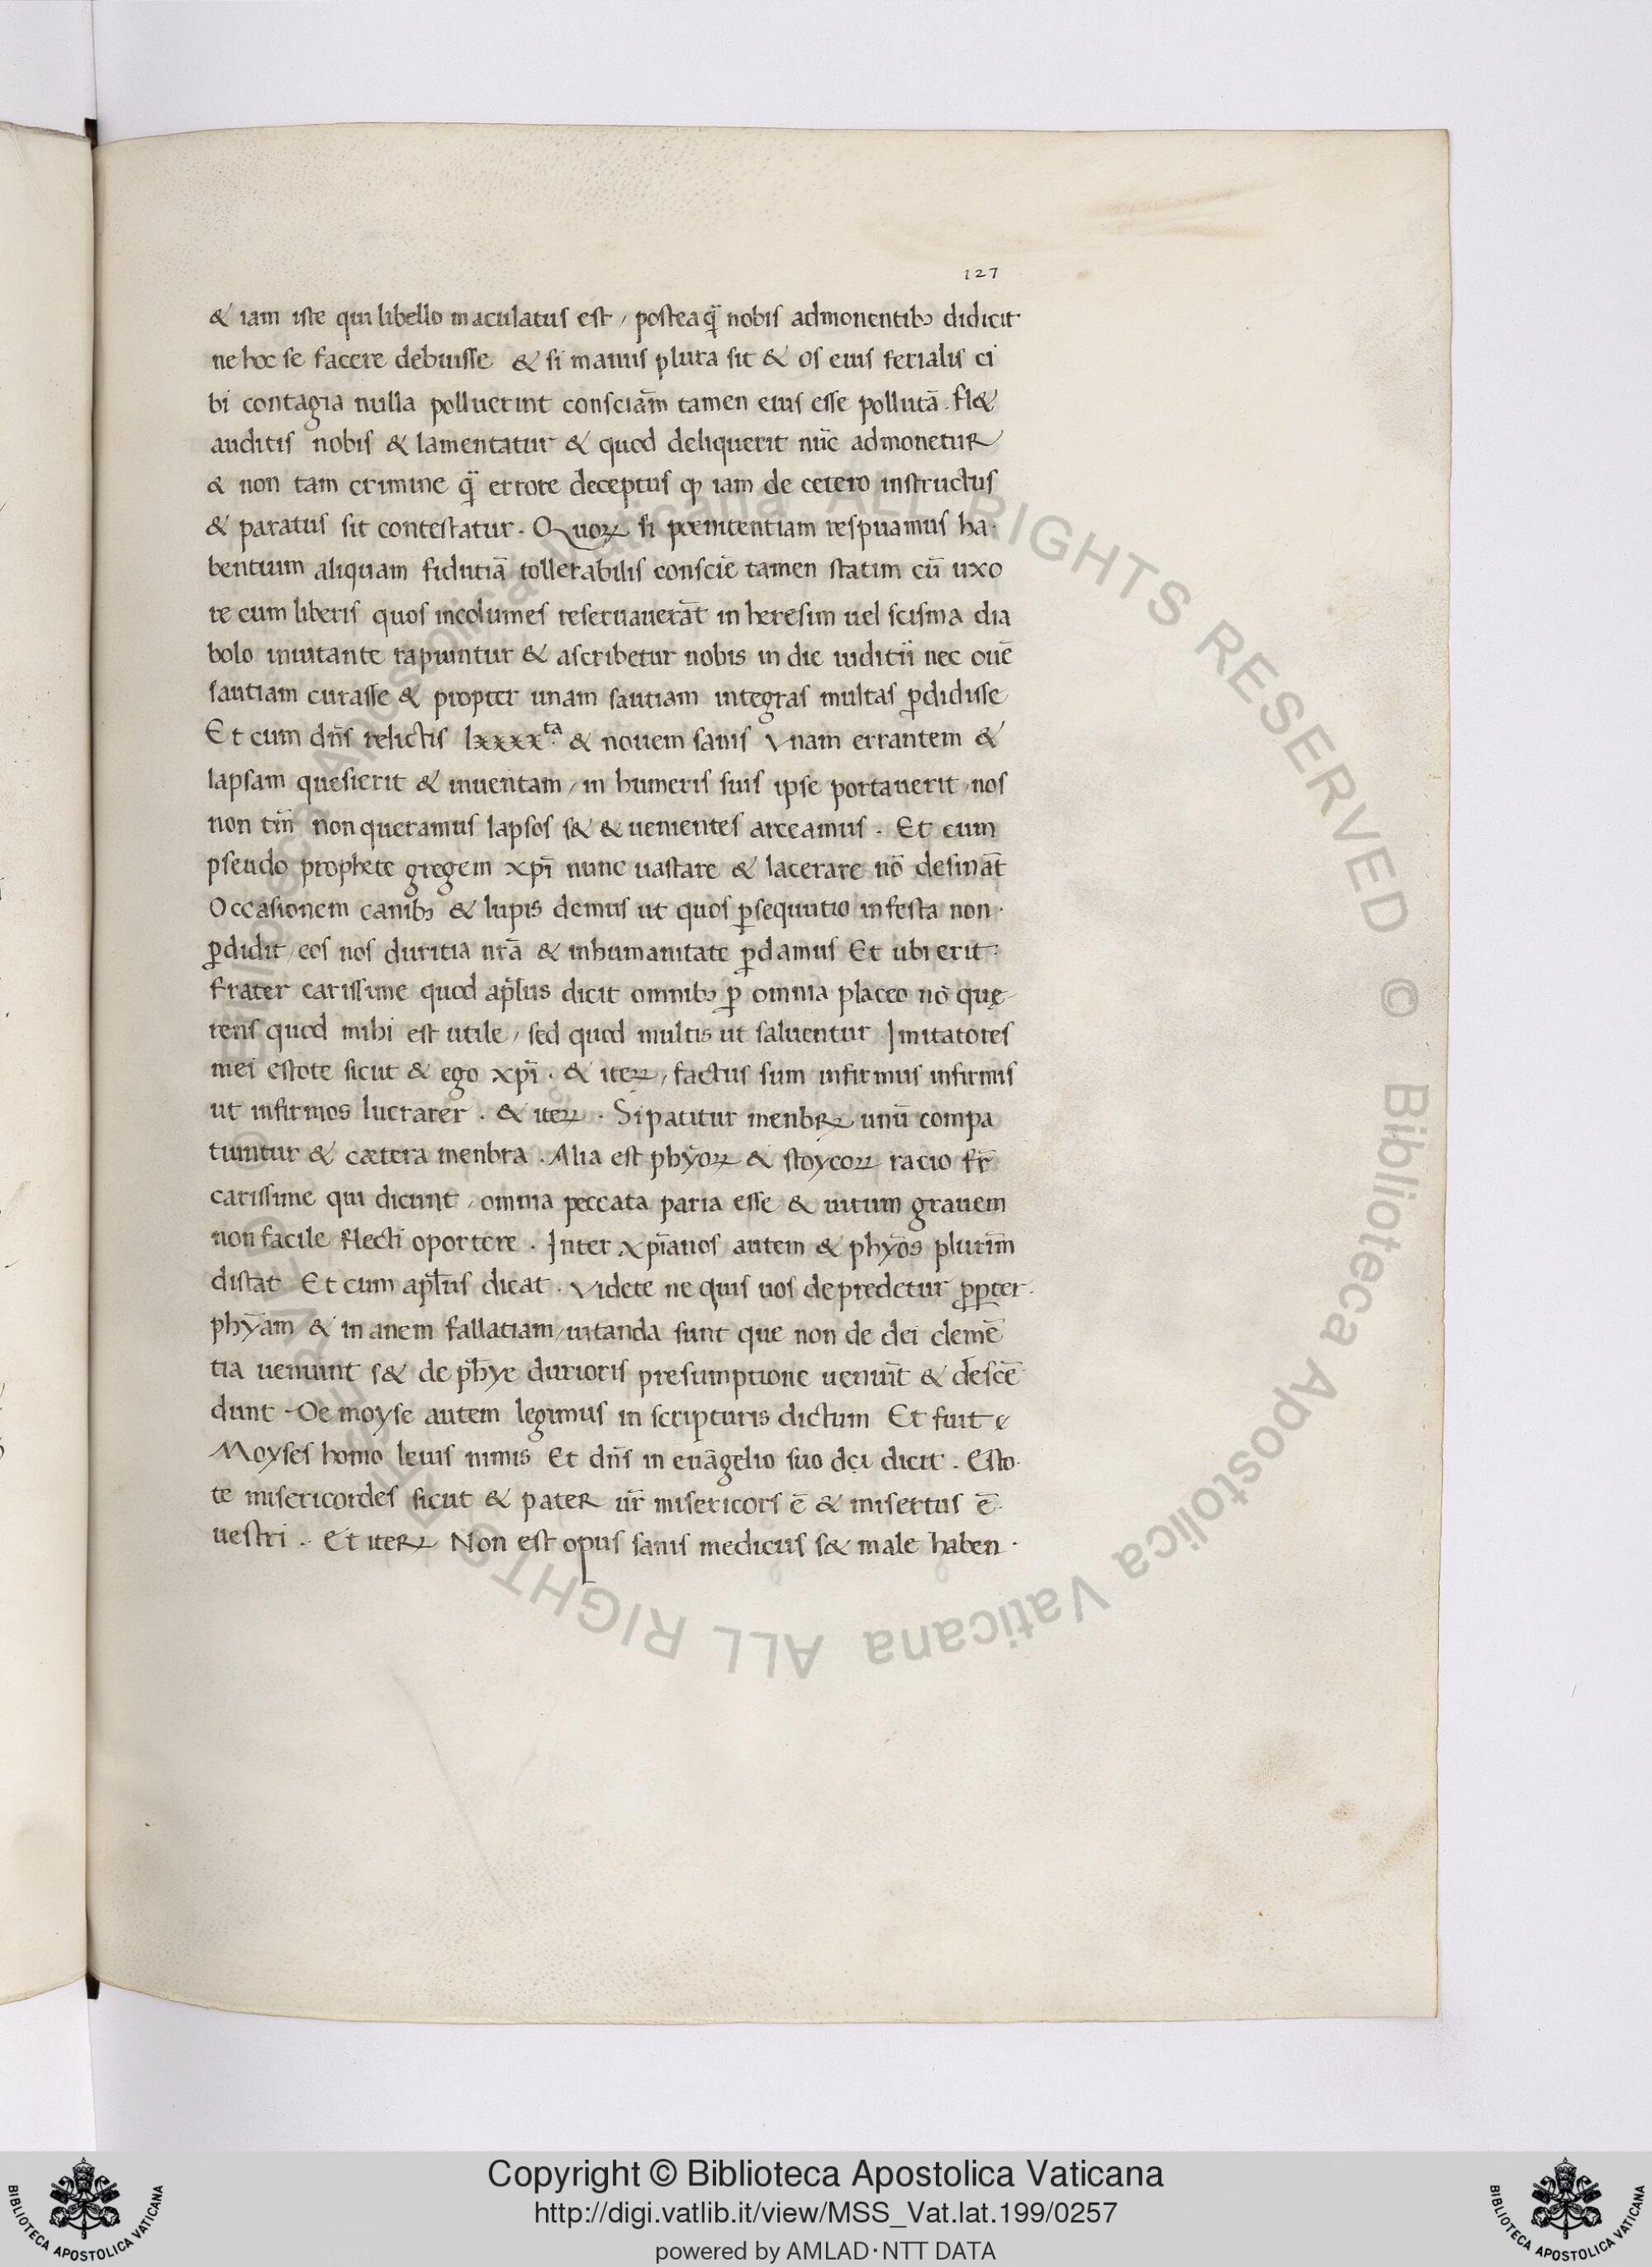 127
& iam iste qui libello maculatus est / posteaq̃ nobis admonentibꝫ didicit
ne hoc se facere debuisse & si manus plura sit & os eius ferialis ci
bi contagia nulla polluerint consciãm tamen eius esse pollutã . fl&
auditis nobis & lamentatur & quod deliquerit nũc admonetur
& non tam crimine q̃ errore deceptus ꝙ iam de cetero instructus
& paratus sit contestatur . Quoꝝ si pœnitentiam respuamus ha-
bentium aliquam fidutiã tollerabilis consciẽ tamen statim cũ uxo
re cum liberis quos incolumes reseruauerãt in heresim uel scisma dia
bolo inuitante rapiuntur & ascribetur nobis in die iuditii nec ouẽ
sautiam curasse & propter unam sautiam integras multas ꝑdidisse
Et cum dñs relictis lxxxxta & nouem sanis Vnam errantem &
lapsam quesierit & inuentam / in humeris suis ipse portauerit / nos
non tm̃ non queramus lapsos s& & uenientes arceamus . Et cum
pseudo prophete gregem xpĩ nunc uastare & lacerare nõ desinãt
Occasionem canibꝫ & lupis demus ut quos ꝑsequutio infesta non .
ꝑdidit / eos nos duritia nrã & inhumanitate ꝑdamus Et ubi erit
frater carissime quod apl̃us dicit omnibꝫ ꝑ omnia placeo nõ quę
rens quod mihi est utile / sed quod multis ut saluentur Imitatores
mei estote sicut & ego xpĩ . & iteꝝ / factus sum infirmus infirmis
ut infirmos lucrarer . & iteꝝ . Si patitur menbꝝ unũ compa
tiuntur & cætera menbra . Alia est phỹoꝝ & stoycoꝝ racio fr̃
carissime qui dicunt / omnia peccata paria esse & uirum grauem
non facile flecti oportere . Inter xpĩanos autem & phỹos plurim̃
distat Et cum apl̃us dicat . Videte ne quis uos depredetur ꝓpter .
phỹam & inanem fallatiam / uitanda sunt que non de dei clemẽ
tia ueniunt s& de phỹe durioris presumptione ueniũt & descẽ
dunt - De moyse autem legimus in scripturis dictum Et fuit
Moyses homo leuis nimis Et dñs in euãgelio suo dicit . Esto
te misericordes sicut & pater ur̃ misericors ẽ & misertus ẽ
uestri . Et iteꝝ Non est opus sanis medicus s& male haben .
Copyright © Biblioteca Apostolica Vaticana
http://digi.vatlib.it/view/MSS_Vat.lat.199/0257
powered by AMLAD·NTT DATA
BIBLIOTECA APOSTOLICA VATICANA
BIBLIOTECA APOSTOLICA VATICANA